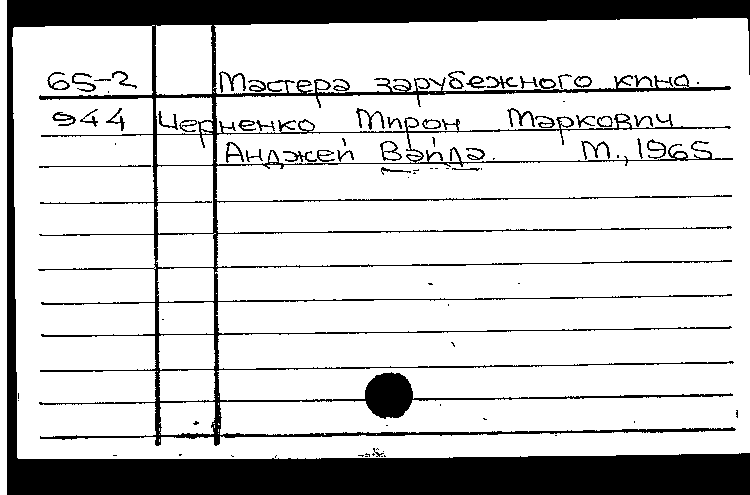 65-2 Мастера зарубежного кино.
944 Черненко Мирон Маркович
Анджей Вайда. М., 1965